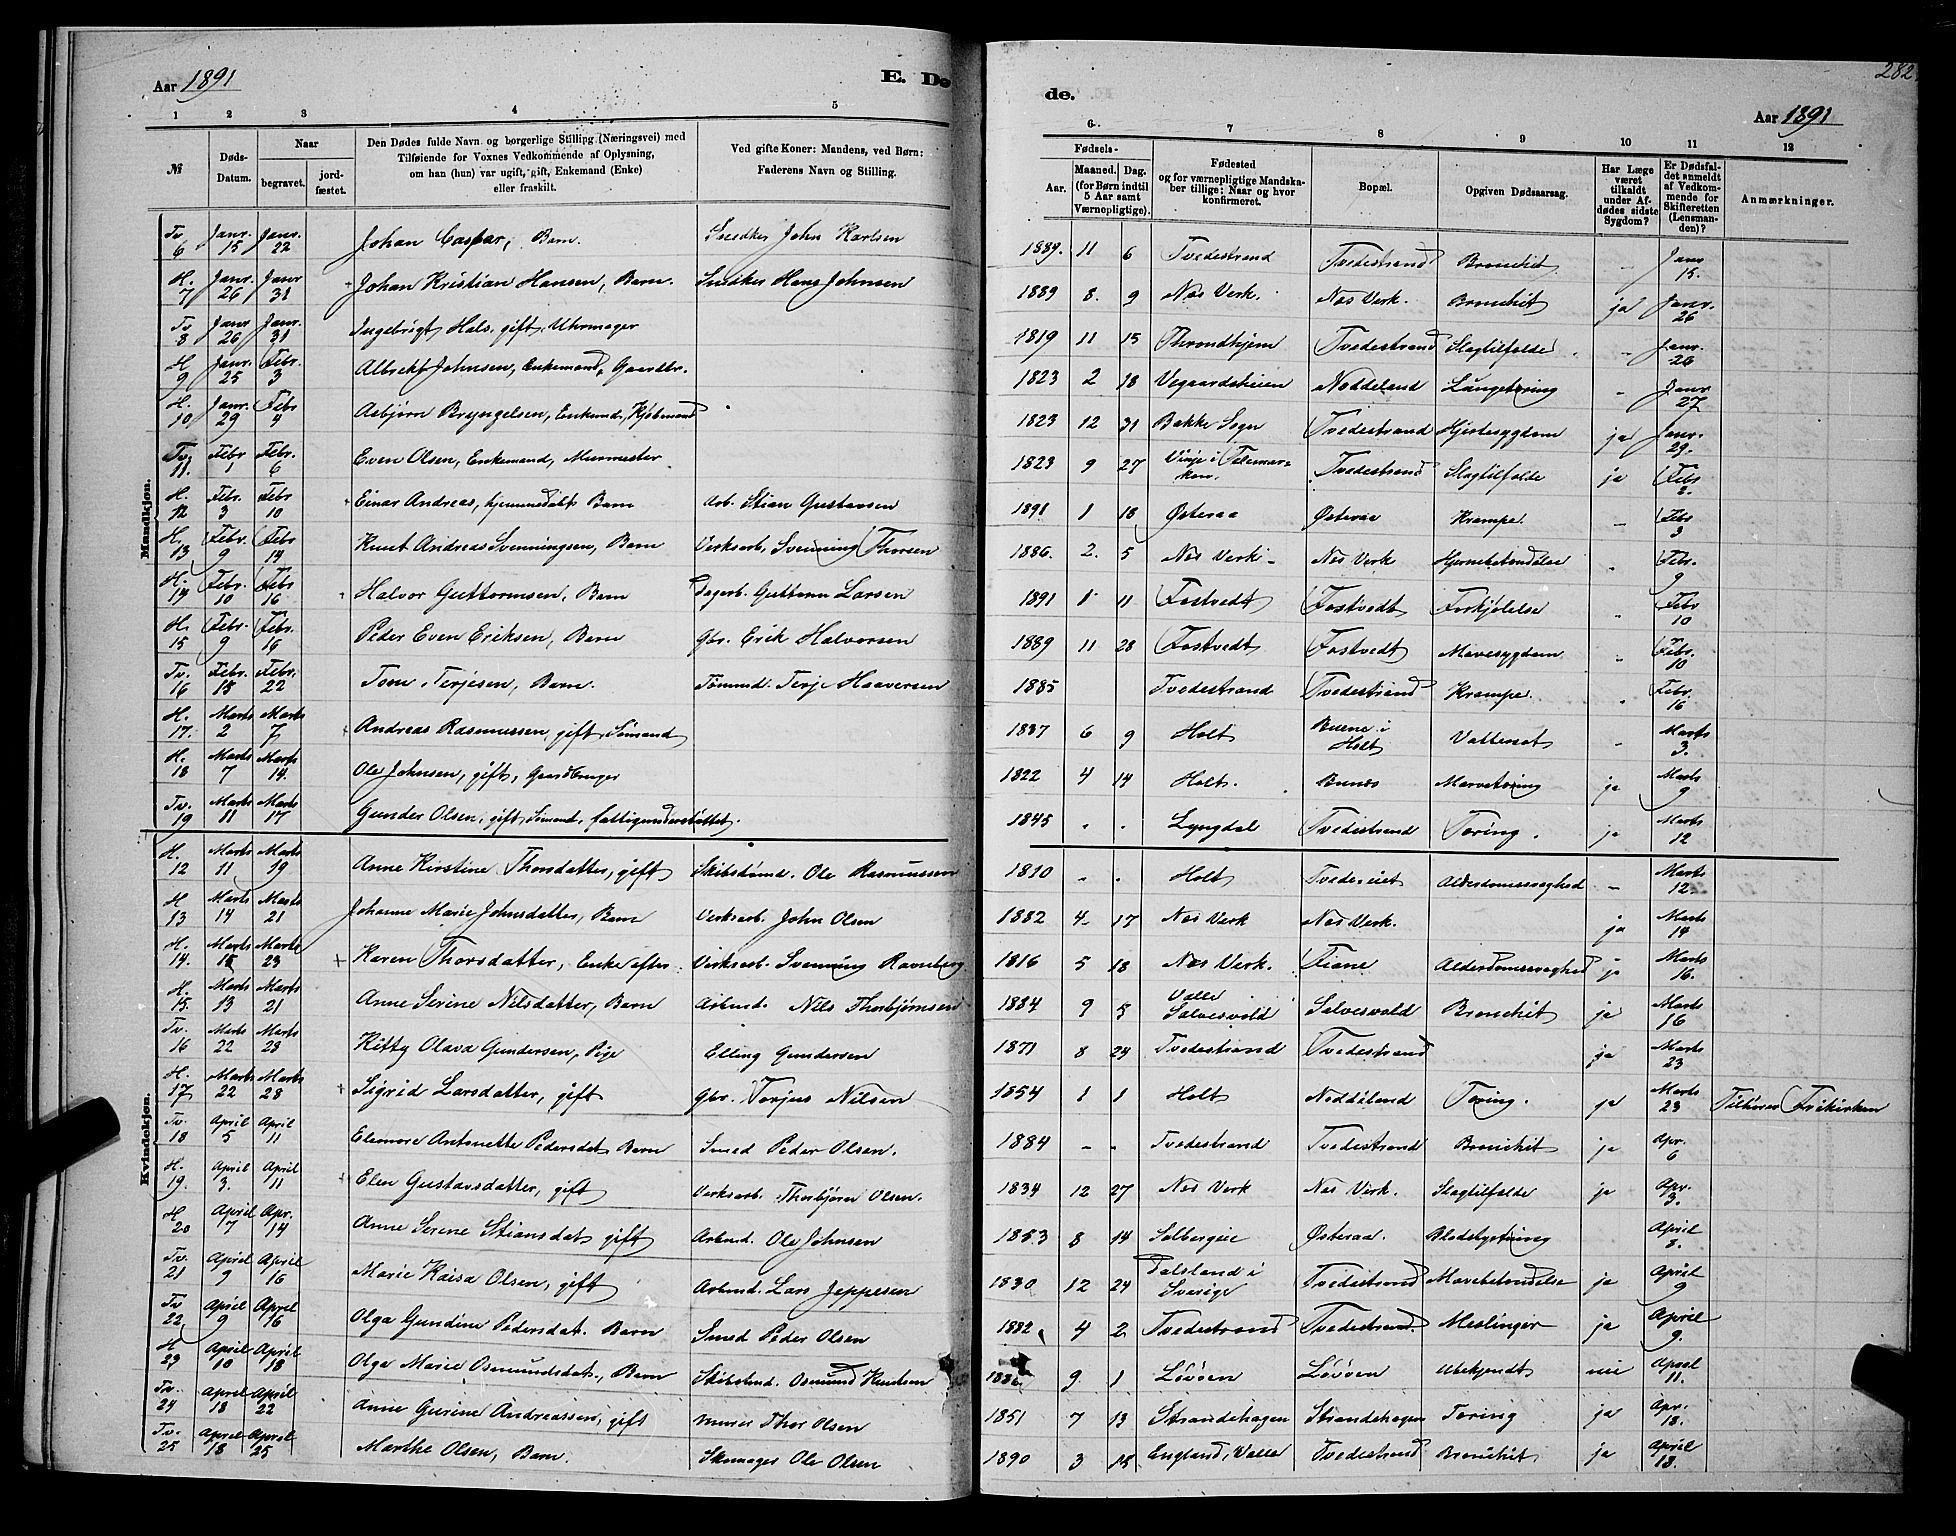 282
Aar 1891
E. Dø
de.
Aar 1891
1 2 3 4 5 6. 7 8 9 10 11 12
№
Døds-Datum.
Naar
begravet.
jord-fæstet.
Den Dødes fulde Navn og borgerlige Stilling (Næringsvei) med
Tilføiende for Voxnes Vedkommende af Oplysning,
om han (hun) var ugift, gift, Enkemand (Enke)
eller fraskilt.
Ved gifte Koner: Mandens, ved Børn:
Faderens Navn og Stilling.
Fødsels-
Aar. Maaned. Dag.
(for Børn indtil
5 Aar samt
Værnepligtige).
Fødested
og for værnepligtige Mandska-
ber tillige: Naar og hvor
konfirmeret.
Bopæl.
Opgiven Dødsaarsag.
Har Læge
været
tilkaldt
under Af-
dødes sidste
Sygdom?
Er Dødsfal-
det anmeldt
af Vedkom-
mende for
Skifteretten
(Lensman-
den)?
Anmærkninger.
Mandkjøn.
Tv. 6 Janr. 15 Janr. 22 Johan Caspar, Barn. Snedker John Karlsen 1889. 11 6 Tvedestrand Tvedestrand Bronchit - Janr 15.
H. 7 Janr. 26 Janr 31 Johan Kristian Hansen, Barn. Snedker Hans Johnsen 1889 8. 9 Næs Verk. Næs Verk. Bronchit ja Janr. 26
Tv 8 Janr 26 Janr. 31 Ingebrigt Hals, gift, Uhrmager 1819 11 15 Throndhjem Tvedestrand Slagtilfælde - Janr. 26
H 9 Janr. 25 Febr. 3 Albrekt Johnsen, Enkemand, Gaardbr. 1823 2 18 Vegaardsheien Noddeland Lungetæring - Janr 27
H. 10 Janr. 29 Febr 4 Asbjørn Bryngelsen, Enkemd, Kjøbmand 1823 12 31 Bakke Sogn Tvedestrand Hjertesygdom ja Janr. 29.
Tv. 11. Febr 1 Febr. 6 Even Olsen, Enkemand, Murmester 1823 9 27 Vinje i Telemarken. Tvedestrand Slagtilfælde ja Febr 2.
H. 12 Febr. 3 Febr 10 Einar Andreas, hjemmedøbt Barn Arb. Stian Gustavsen 1891 1 18 Østeraa Østeraa Krampe. - Febr 3
H. 13 Febr. 9 Febr 14 Knut Andreas Svenningsen, Barn Verksarb. Svenning Thorsen 1886. 2. 5 Næs Verk - Næs Verk Hjernebetændelse Febr. 9
H. 14 Febr. 10 Febr 16 Halvor Guttormsen, Barn Dagarb. Guttorm Larsen 1891 1 11 Fostvedt Fostvedt Forkjølelse Febr 10
H. 15 Febr. 9 Febr. 16 Peder Even Eriksen, Barn Gbr. Erik Halvorsen 1889 11 28 Fostvedt Fostvedt Mavesygdom Febr. 10
Tv. 16 Febr. 15 Febr. 22 Tom Terjesen, Barn. Tømmd. Terje Haaversen 1885 Tvedestrand Tvedestrand Krampe. Febr. 16
H. 17. Marts 2 Marts 7 Andreas Rasmussen, gift Sømand 1837 6 9 Holt i Holt Vattersot - Marts 3.
H. 18 Marts 7 Marts 14. Ole Johnsen, gift, Gaardbruger 1822 4 14 Holt. Marvetæring ja Marts 9
Tv. 19 Marts 11 Marts 17 Gunder Olsen, gift Sømand, fattigunderstøttet. 1845 Lyngdal Tvedestrand Tæring. ja Marts 12
Kvindekjøn.
H. 12 Marts 11 Marts 19 Anne Kirstine Thorsdatter, gift Skibstømd. Ole Rasmussen 1810 - - Holt Alderdomssvaghed - Marts 12
H 13 Marts 14 Marts 21 Johanne Marie Johnsdatter, Barn Verksarb. John Olsen 1882 4 17 Næs Verk Næs Verk. ja Marts 14
H. 14. Marts 15 Marts 23 + Karen Thorsdatter, Enke efter Verksarb. Svenning Ravneberg 1816 5 18 Næs Verk. Fiane Alderdomssvaghed ja Marts 16.
H. 15. Marts 13 Marts 21 Anne Serine Nilsdatter, Barn Arbmd. Nils Thorbjørnsen 1884 9 5 Valle Salvesvold Salvesvold Bronchit ja Marts 16
Tv. 16 Marts 22 Marts 28 Kitty Olava Gundersen, Pige Elling Gundersen 1871 8 24 Tvedestrand Tvedestrand ja Marts 23
H. 17 Marts 22 Marts 28 + Sigrid Larsdatter, gift Gbr. Torjus Nilsen 1854 1 1 Holt Noddeland Tæring. ja Marts 23 Tilhører Frikirken
Tv. 18 April 5 April 11 Eleonore Antonette Pedersdat. Barn Smed Peder Olsen. 1884 - - Tvedestrand Tvedestrand Bronchit ja Apr. 6
H. 19. April 3. April 11 + Elen Gustavsdatter, gift Verksarb. Thorbjørn Olsen. 1834 12 27 Næs Verk Næs Verk. Slagtilfælde ja Apr. 3.
H 20 April 7 Apr. 14 Anne Serine Stiansdat. gift Arbmd. Ole Johnsen 1853 8 14 Solbergeie Østeraa. Blodstyrtning April 8.
Tv. 21 April 9 April 16 Marie Kaisa Olsen, gift Arbmd. Lars Jeppesen 1830 12 24 Dalsland i Sverige Tvedestrand Mavebetændelse ja April 9
Tv 22 April 9 April 16 Olga Gundine Pedersdat. Barn Smed Peder Olsen 1882 4 2 Tvedestrand Tvedestrand. Meslinger ja April 9.
H 23 April 10 April 18 Olga Marie Osmundsdat., Barn Skibstmd. Osmund Knutsen 9. 1 Løvøen Løvøen Ubekjendt nei April 11.
Tv. 24 April 18 April 22 Anne Gurine Andreassen, gift Murer Thor Olsen 1851 7 13 Strandehagen Strandehagen Tæring ja Apr. 18.
Tv. 25 April 18 April 25 Marthe Olsen, Barn. Skomager Ole Olsen 1890 3 15 England, Valle Tvedestrand Bronchit ja April 18.